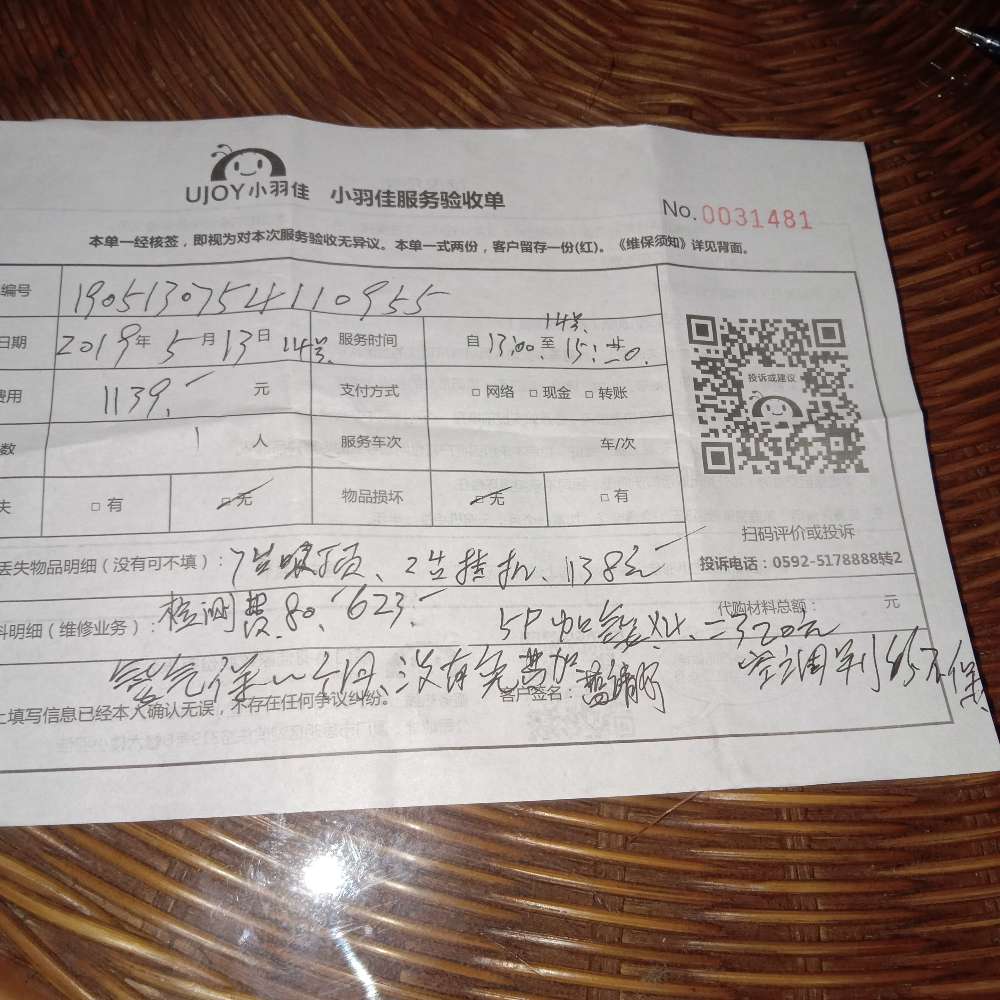 UJOY小羽佳 小羽佳服务验收单 No.0031481
本单一经核签，即视为对本次服务验收无异议。本单一式两份，客户留存一份(红)。《维保须知》详见背面。
编号 1905130754110955
日期 2019年 5月13日 14号 服务时间 自 13:00 至 14号 15:
费用 1139. 元 支付方式 □ 网络 □ 现金 □ 转账
数 1 人 服务车次 车/次
失 □ 有 □ 无 物品损坏 □ 无 □ 有
投诉或建议
扫码评价或投诉
投诉电话：0592-5178888转2
丢失物品明细（没有可不填）：7台吸顶、2台挂机、1138元
料明细（维修业务）：检测费80. 623. 5P加 X4. =320元
代购材料总额： 元
氨气保一个月、没有免费加 空调制 不保
上填写信息已经本人确认无误，不存在任何争议纠纷。 客户签名：